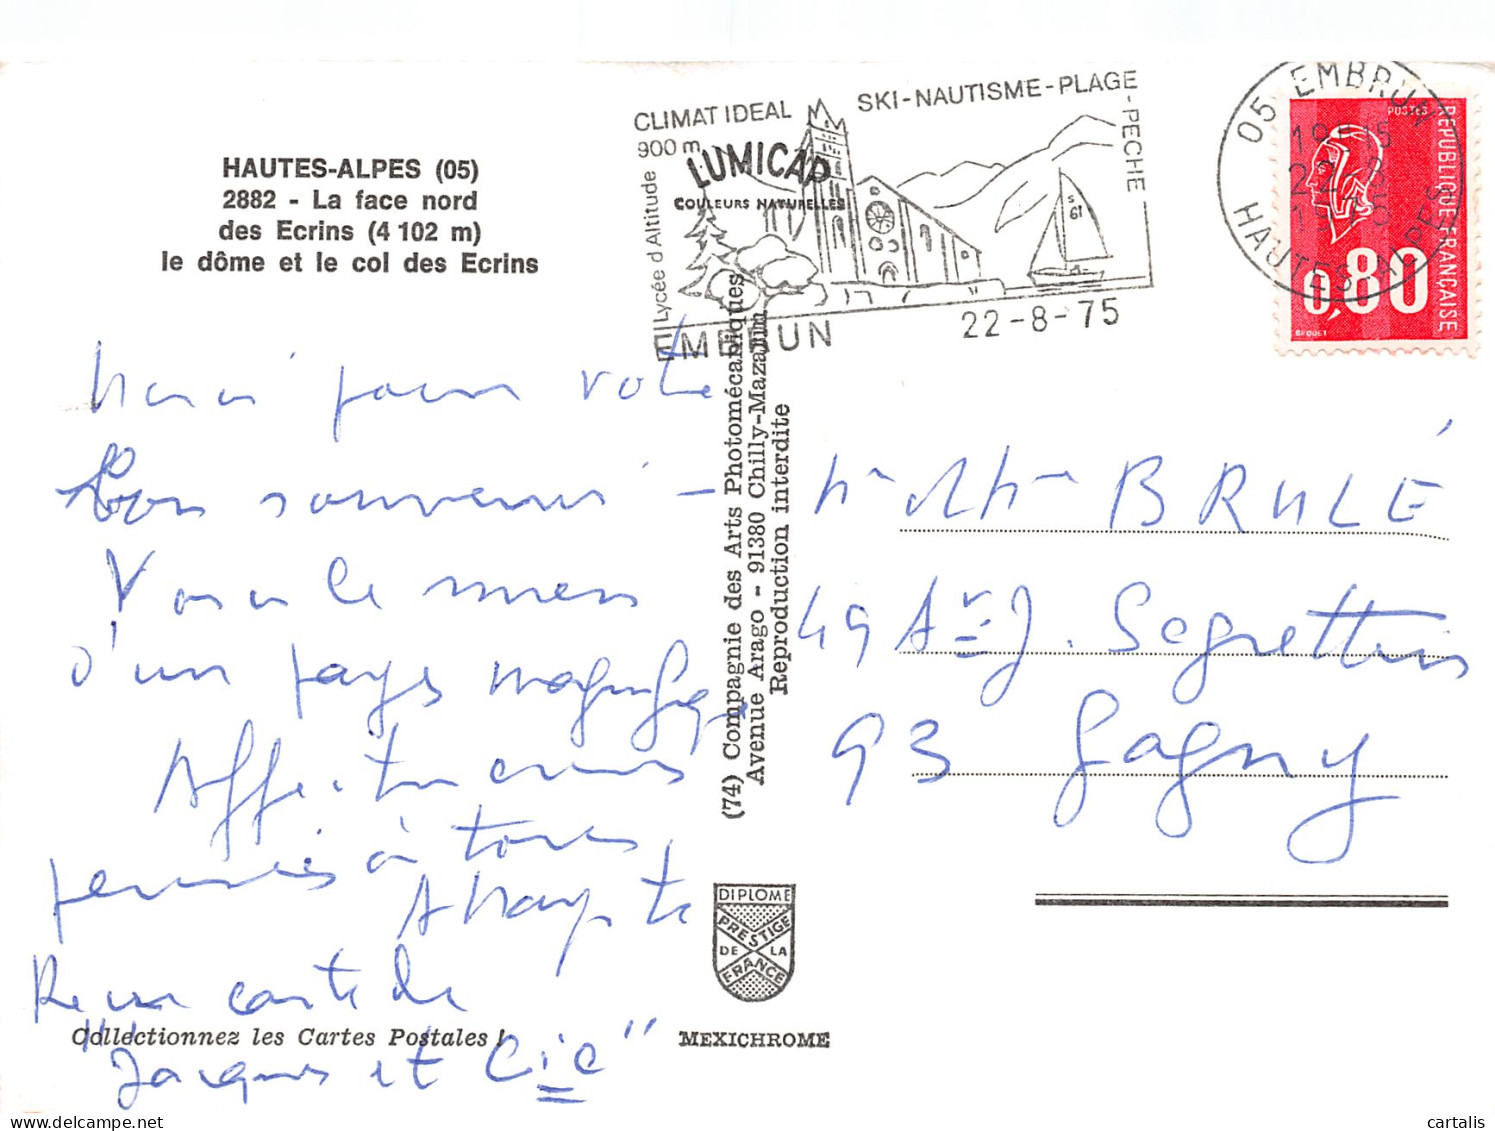 HAUTES-ALPES (05)
2882 - La face nord
des Ecrins (4 102 m)
le dôme et le col des Ecrins
CLIMAT IDEAL
900 m
SKI-NAUTISME-PLAGE-PECHE
Lycée d'Altitude
EMBRUN
22-8-75
LUMICAP
COULEURS NATURELLES
S
61
05 EMBRUN
HAUTES ALPES
POSTES
REPUBLIQUE FRANÇAISE
0,80
BEQUET
Merci pour votre
bon souvenir -
Voici le mien
d'un pays magnifique
Affectueuses
pensées à tous
Reçu carte de
"Jacques et Cie"
(74) Compagnie des Arts Photomécaniques
Avenue Arago - 91380 Chilly-Mazarin
Reproduction interdite
Mr et Mme BRULÉ
49 Av J.
93 Gagny
DIPLOME
PRESTIGE
DE LA
FRANCE
Collectionnez les Cartes Postales !
MEXICHROME
cartalis
delcampe.net